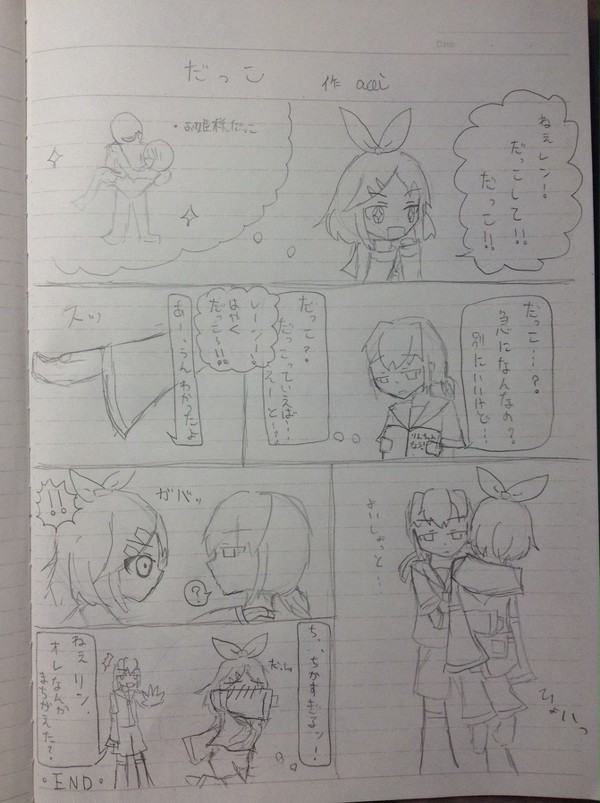 だっこ
作 acci
ねぇレンー。
だっこして!!
だっこ!!
・お姫様だっこ
だっこ…?。
急になんなの?。
別にいいけど…。
だっこ?。
だっこっていえば…
えーと…?
レーンー!。
はやく
だっこ〜!!
あー、うんわかったよ
スッ
よいしょっと…
ひょいっ
ガバッ
?
!!
ち、、ちかすぎるッー!
ねぇ リン、
オレなんか
まちがえた?
・END・